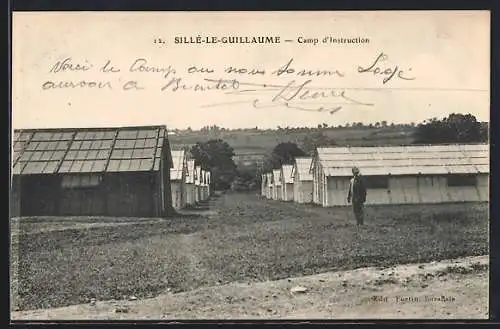 12. SILLÉ-LE-GUILLAUME — Camp d'Instruction
Voici le Camp ou nous somme Logé
au revoir a Bientot